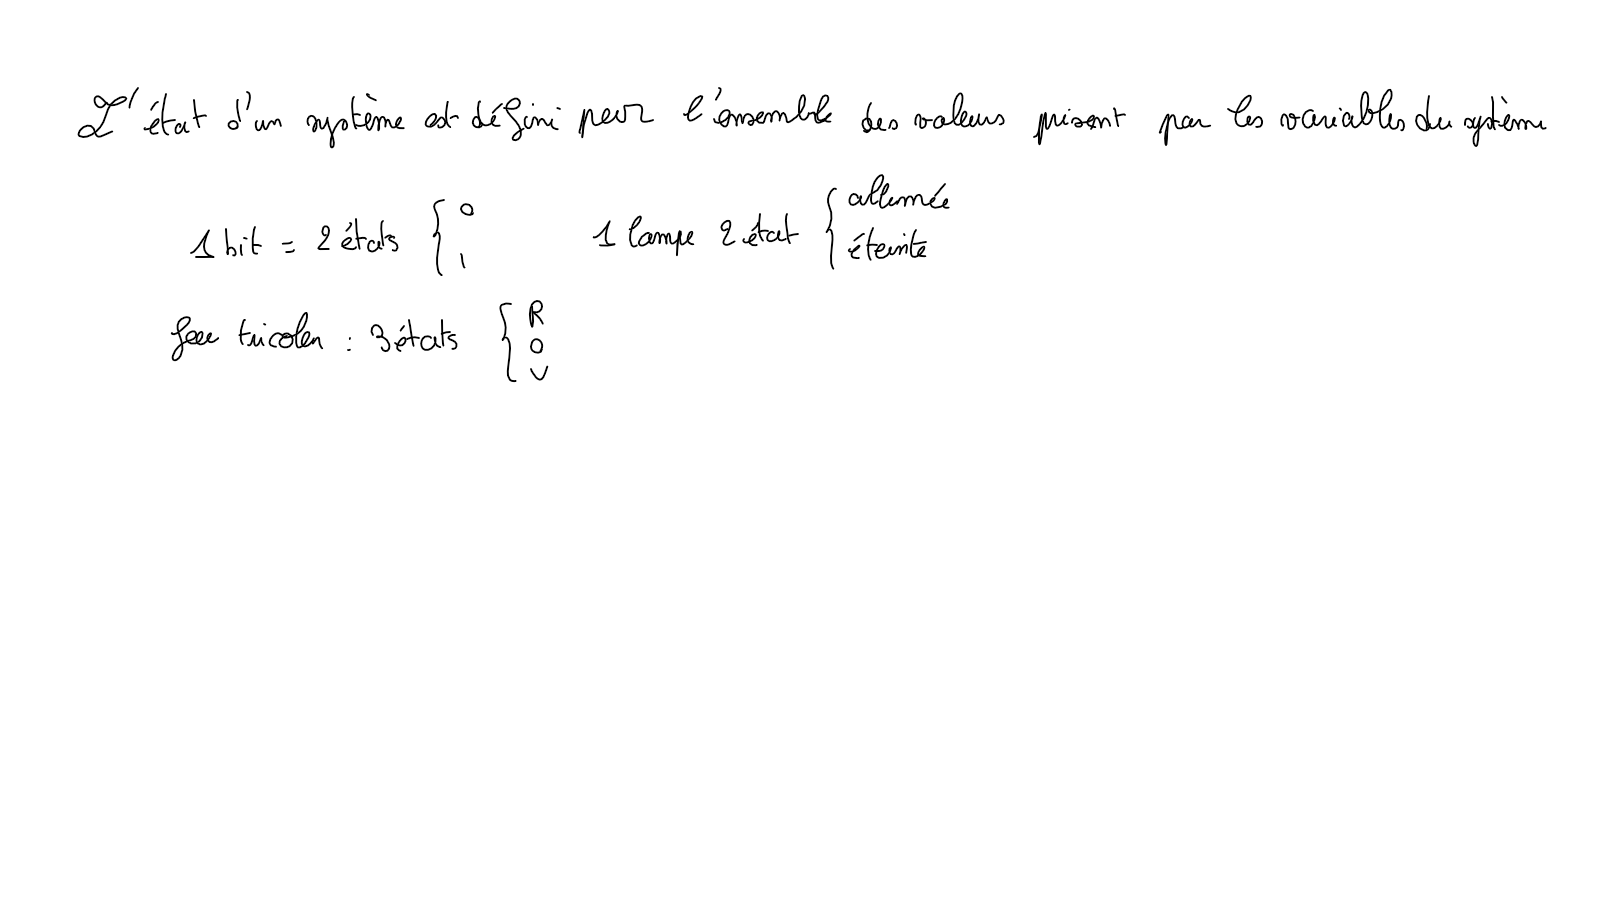 L'état d'un système est défini par l'ensemble des valeurs prisent par les variables du système
1 bit = 2 états { 0 1
1 lampe 2 état { allumée éteinte
feu tricolor : 3 états { R O V